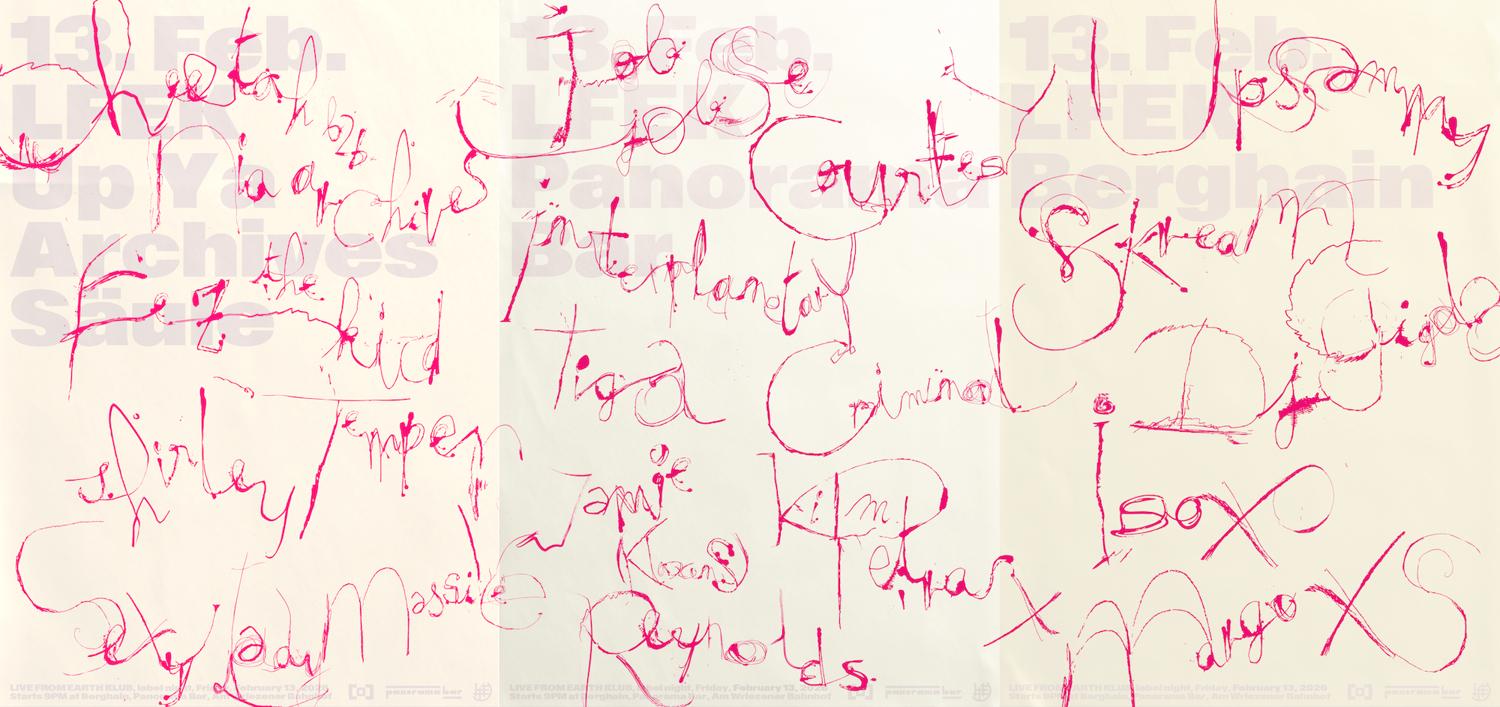 13. Feb.
LFEK
Up Ya
Archives
Säule
Cheetah b2b
Nia archives
Fez the
kid
Shirley Temper
Sexy Lady Massive
LIVE FROM EARTH KLUB, label night, Friday, February 13, 2026
Starts 9PM at Berghain, Panorama Bar, Am Wriezener Bahnhof
panorama bar
13. Feb.
LFEK
Panorama
Bar
Job
jobse
Courtesy
interplanetary
Criminal
Tiga
Jamie
Reynolds
LIVE FROM EARTH KLUB, label night, Friday, February 13, 2026
Starts 9PM at Berghain, Panorama Bar, Am Wriezener Bahnhof
panorama bar
13. Feb.
LFEK
Berghain
Upsammy
Skream
Dj Gigola
Isox
Margo XS
LIVE FROM EARTH KLUB, label night, Friday, February 13, 2026
Starts 9PM at Berghain, Panorama Bar, Am Wriezener Bahnhof
panorama bar